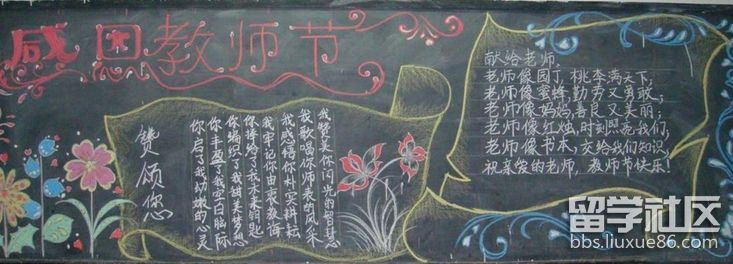 感恩教师节
赞颂您
你启了我幼嫩的心灵
你丰盈了我空白脑际
你编织了我甜美梦想
你捧给了我未来钥匙
我牢记你由衷教诲
我感悟你朴实耕耘
我歌唱你师表的风采
我赞美你闪光的智慧
献给老师:
老师像园丁,桃李满天下;
老师像蜜蜂,勤劳又勇敢;
老师像妈妈,善良又美丽;
老师像红烛,时刻照亮我们;
老师像书本,交给我们知识,
祝亲爱的老师,教师节快乐!
留学社区
bbs.liuxue86.com